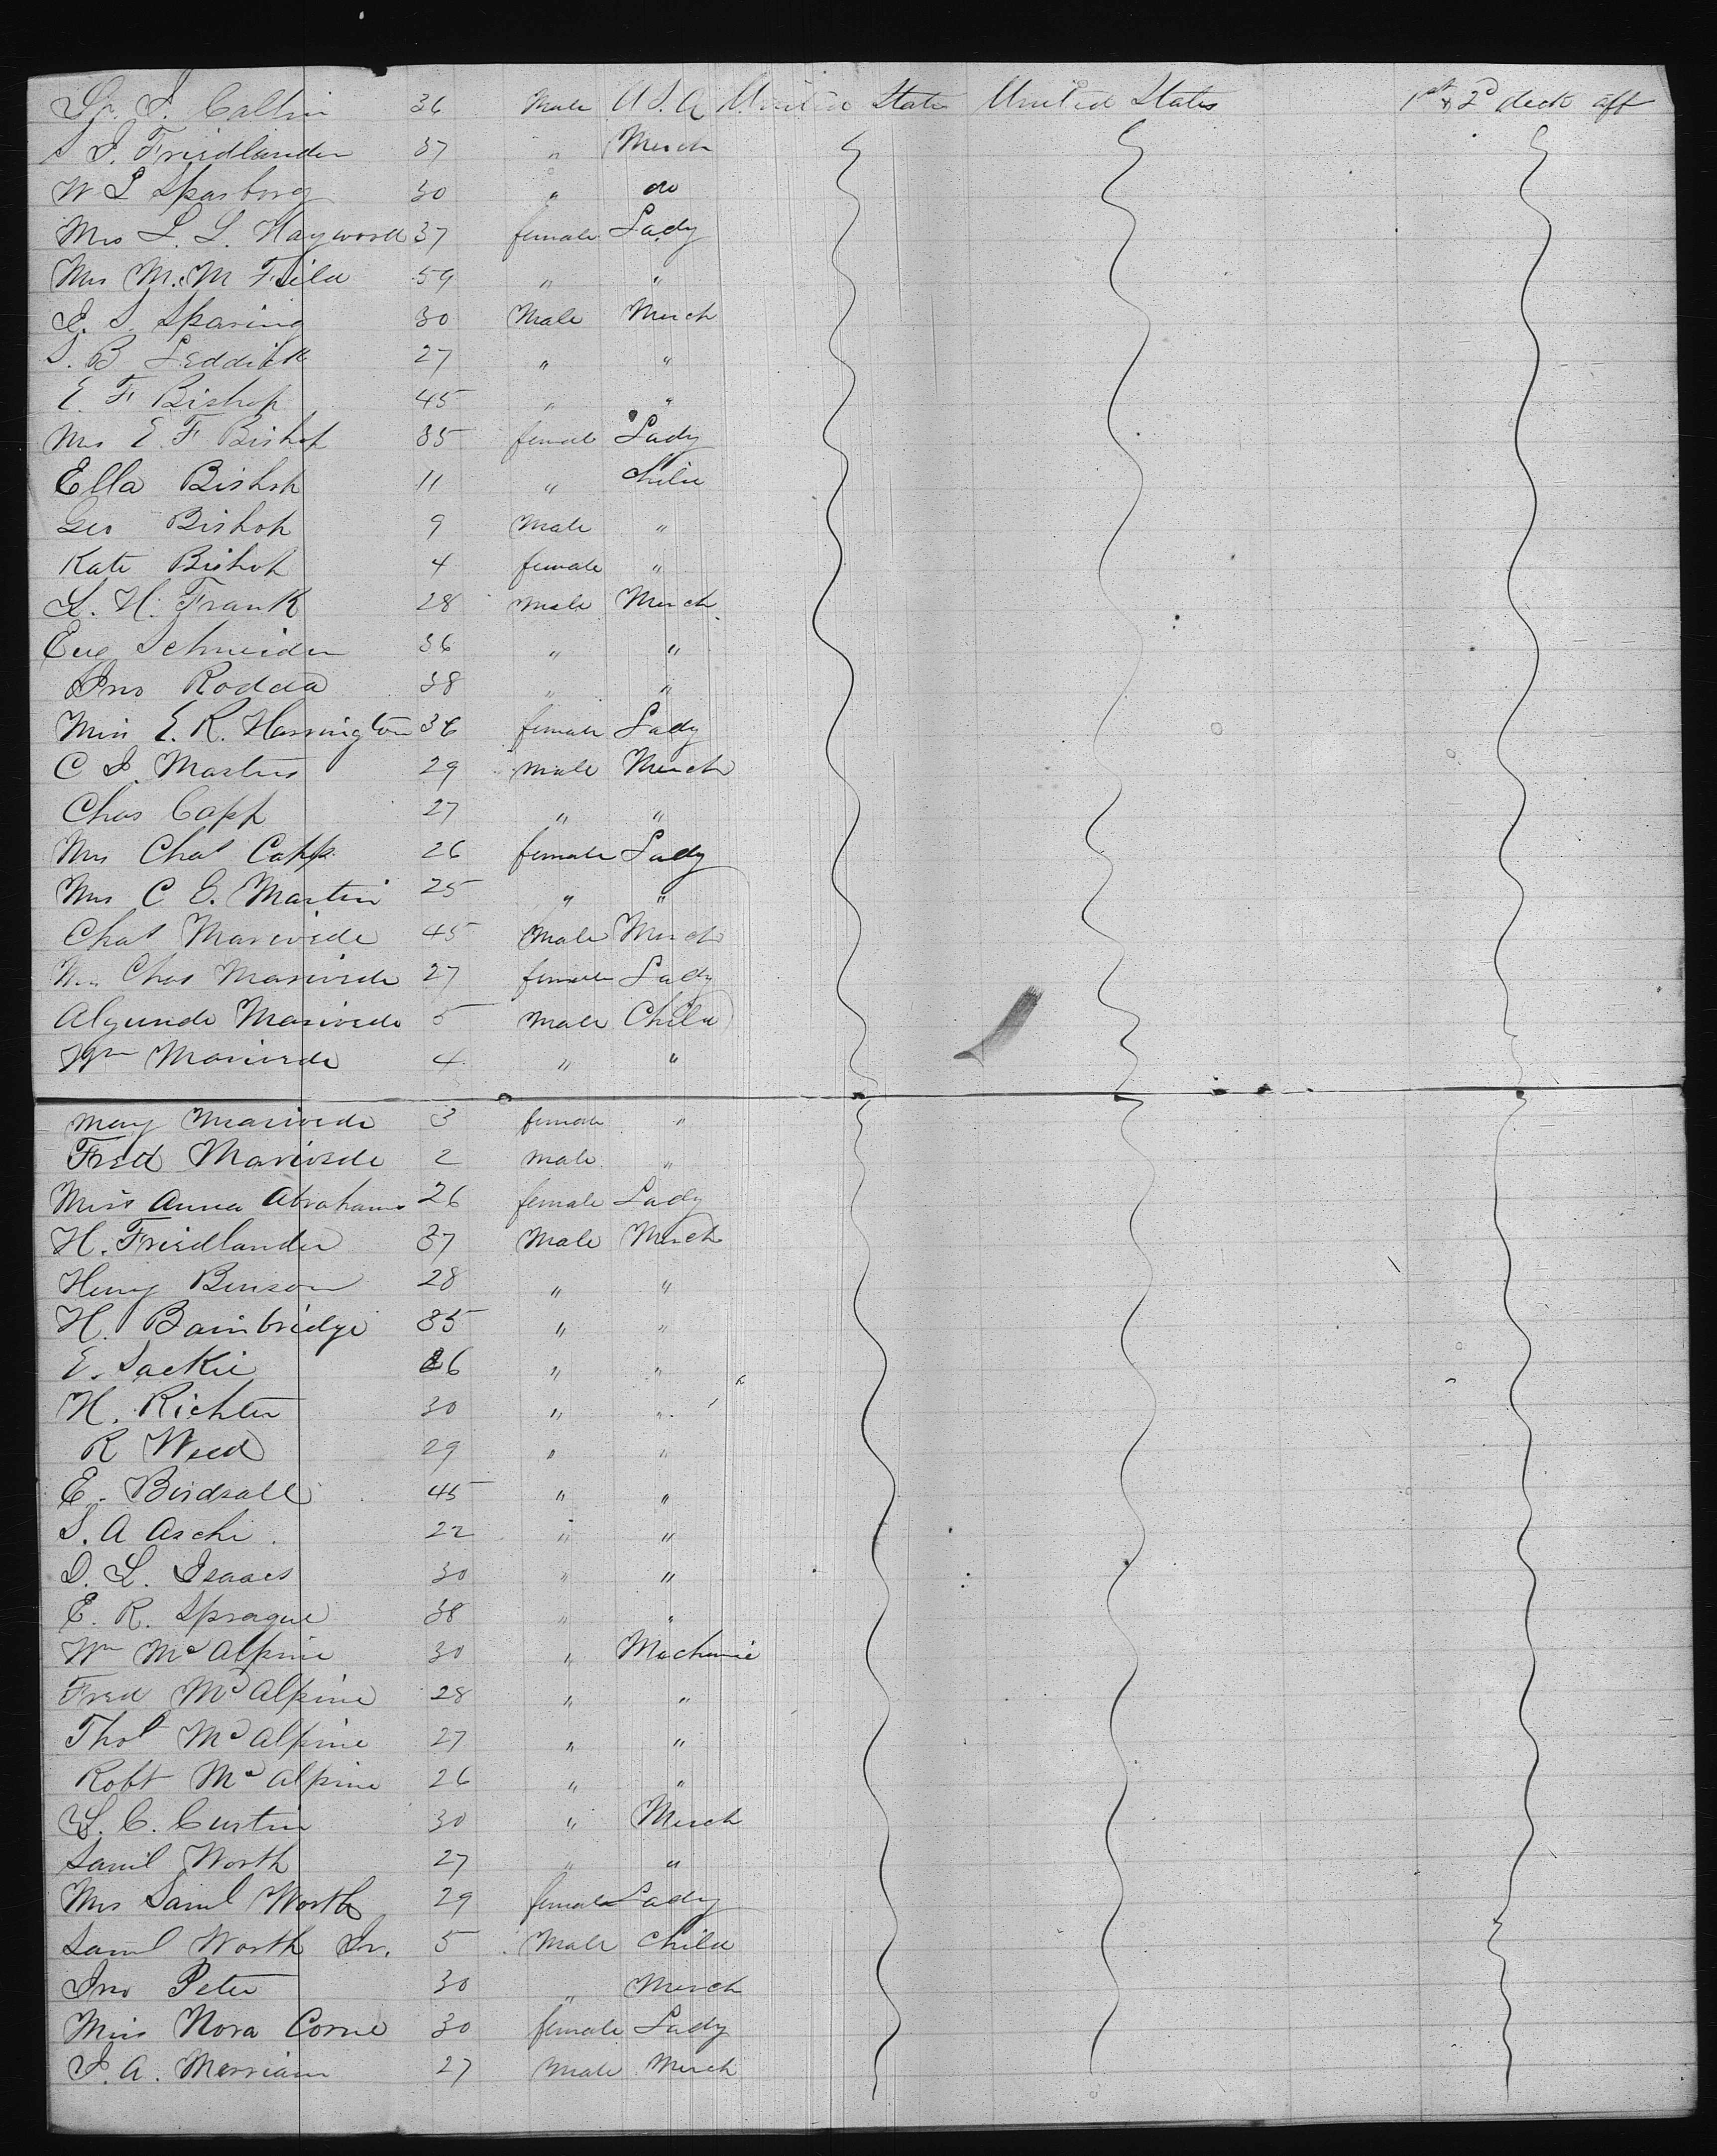 36 Male U.S.A United States United States 1st & 2d deck aft
S I. Friedlander 37 " Merch
W L Sparborg 30 " do
Mrs L. L. Hayward 37 female Lady
Mrs M. M Feild 59 " "
I. S. Sparing 30 Male Merch
S. B Leddick 27 " "
E. F. Bishop 45 " "
Mrs E F Bishop 35 female Lady
Ella Bishop 11 " Child
Geo Bishop 9 Male "
Kate Bishop 4 female "
L. H. Frank 28 Male Merch
Eug Schneider 36 " "
Jno Rodda 38 " "
Miss E. R. Harrington 36 female Lady
C I. Martin 29 Male Merch
Chas Capp 27 " "
Mrs Chas Capp 26 female Lady
Mrs C E. Martin 25 " "
Chas Marivede 45 Male Merch
Mrs Chas Marivede 27 female Lady
Marivede 5 Male Child
Wm Marivede 4 " "
May Marivede 3 female "
Fred Marivede 2 Male "
Miss Anna Abrahams 26 female Lady
H. Friedlander 37 Male Merch
Henry Benson 28 " "
H. Bainbridge 35 " "
E. Sackie 26 " "
H. Richter 30 " "
R Weed 29 " "
E. Birdsall 45 " "
S. A Aschi 22 " "
D. L. Isaacs 30 " "
E. R. Sprague 38 " "
Wm McAlpine 30 " Mechanic
Fred McAlpine 28 " "
Thos McAlpine 27 " "
Robt McAlpine 26 " "
L. C. Curtin 30 " Merch
Saml Worth 27 " "
Mrs Saml Worth 29 female Lady
Saml Worth Jr. 5 Male Child
Jno Peter 30 " Merch
Miss Nora Corne 30 female Lady
I. A. Merriam 27 Male Merch